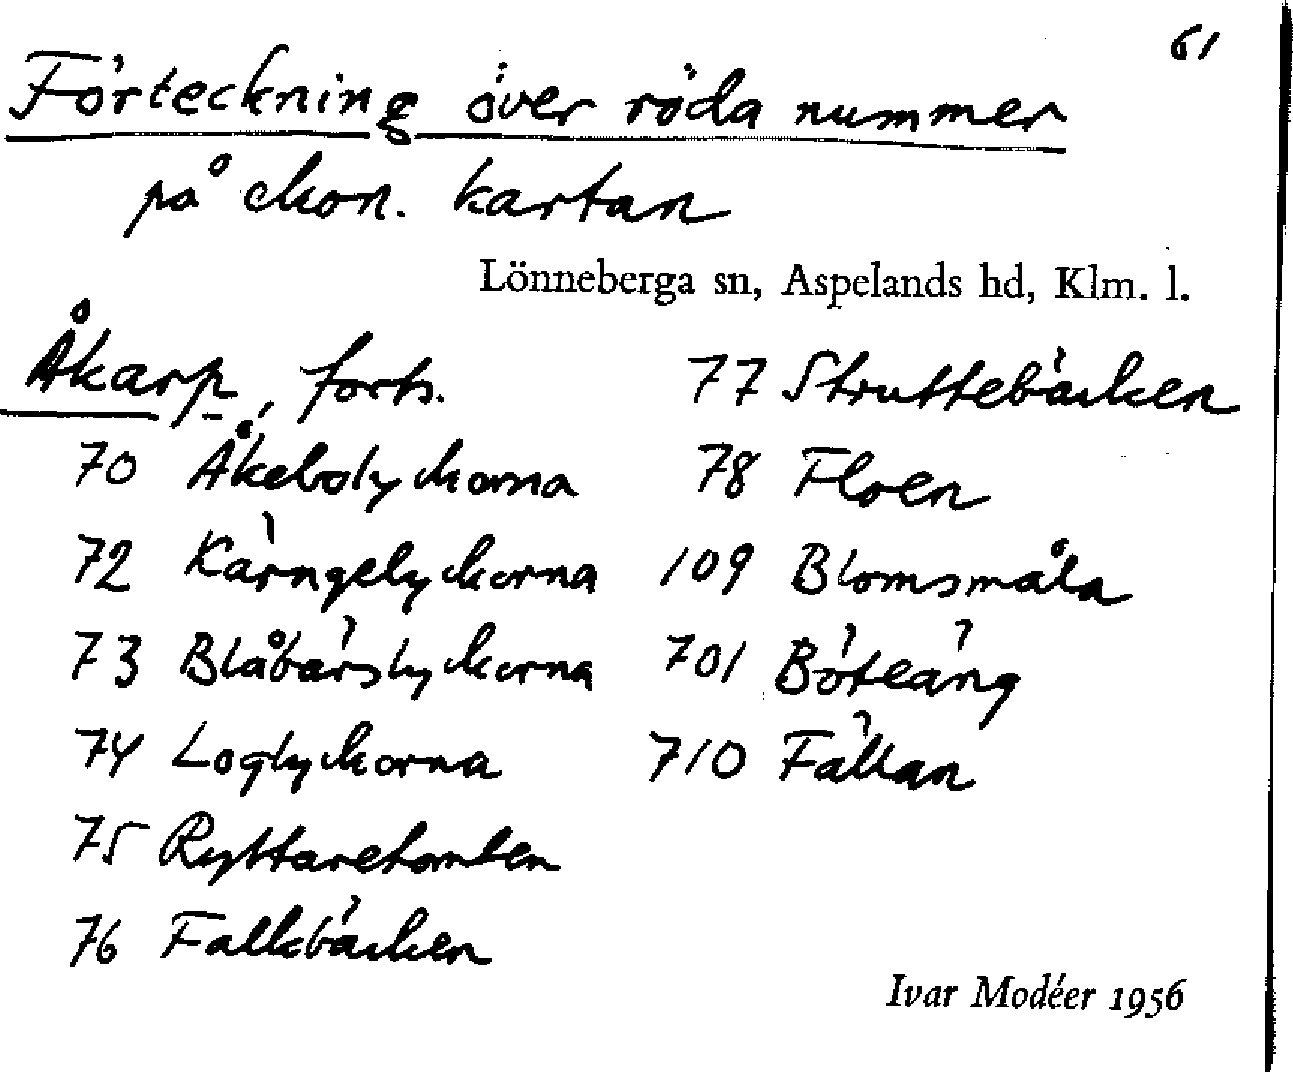 61
Förteckning över röda nummer
på ekon. kartan
Lönneberga sn, Aspelands hd, Klm. l.
Åkarp, forts.
70 Åkebolyckorna
72 Kärngelyckorna
73 Blåbärslyckorna
74 Loglyckorna
75 Ryttaretomten
76 Falkbäcken
77 Struttebäcken
78 Floen
109 Blomsmåla
701 Böteäng
710 Fällan
Ivar Modéer 1956